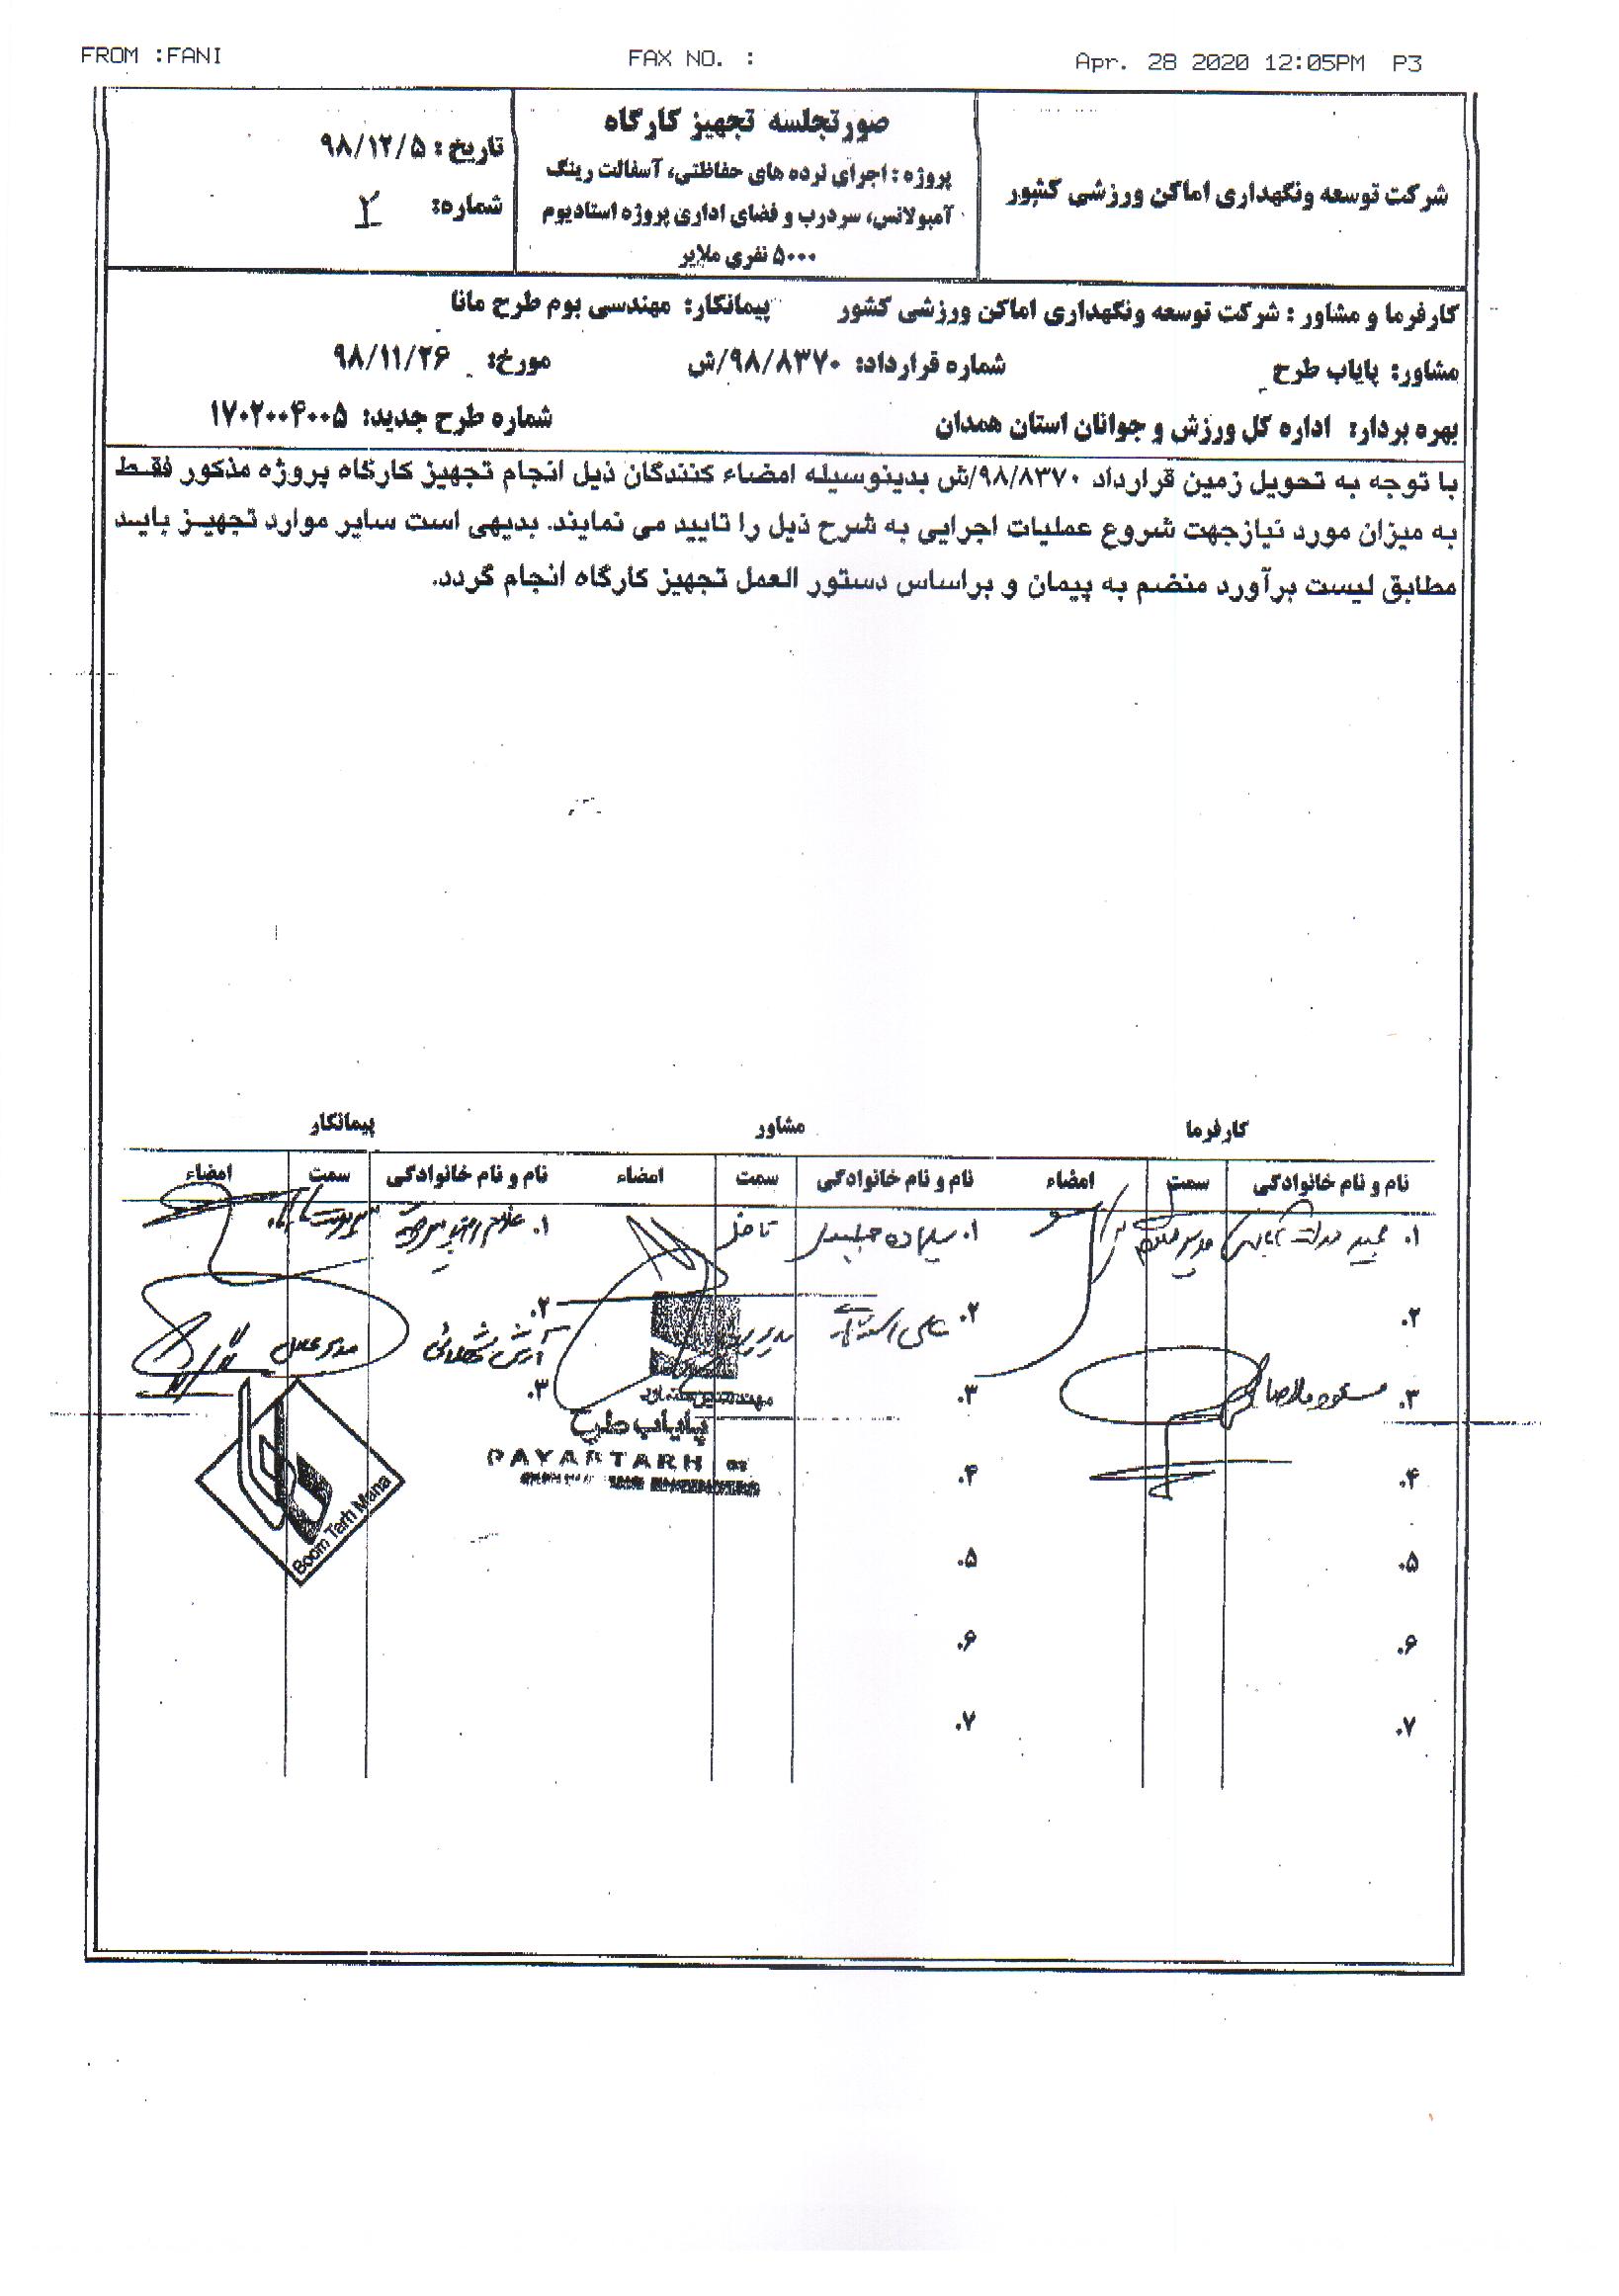 FROM :FANI FAX NO. : Apr. 28 2020 12:05PM P3
شرکت توسعه ونگهداری اماکن ورزشی کشور
صورتجلسه تجهیز کارگاه
پروژه : اجرای نرده های حفاظتی، آسفالت رینگ
آمبولانس، سردرب و فضای اداری پروژه استادیوم
۵۰۰۰ نفری ملایر
تاریخ : ۹۸/۱۲/۵
شماره: ۲
کارفرما و مشاور : شرکت توسعه ونگهداری اماکن ورزشی کشور پیمانکار: مهندسی بوم طرح مانا
مشاور: پایاب طرح شماره قرارداد: ۹۸/۸۳۷۰/ش مورخ: ۹۸/۱۱/۲۶
بهره بردار: اداره کل ورزش و جوانان استان همدان شماره طرح جدید: ۱۷۰۲۰۰۴۰۰۵
با توجه به تحویل زمین قرارداد ۹۸/۸۳۷۰/ش بدینوسیله امضاء کنندگان ذیل انجام تجهیز کارگاه پروژه مذکور فقط
به میزان مورد نیازجهت شروع عملیات اجرایی به شرح ذیل را تایید می نمایند. بدیهی است سایر موارد تجهیز باید
مطابق لیست برآورد منضم به پیمان و براساس دستور العمل تجهیز کارگاه انجام گردد.
کارفرما مشاور پیمانکار
نام و نام خانوادگی سمت امضاء نام و نام خانوادگی سمت امضاء نام و نام خانوادگی سمت امضاء
۱. مجید ۱. ناظر ۱.
۲. ۲. علی ۲. آرش مدیرعامل
۳. مسعود ۳. ۳.
پایاب طرح
PAYAB TARH
۴. ۴.
Boom Tarh Mana
۵. ۵.
۶. ۶.
۷. ۷.